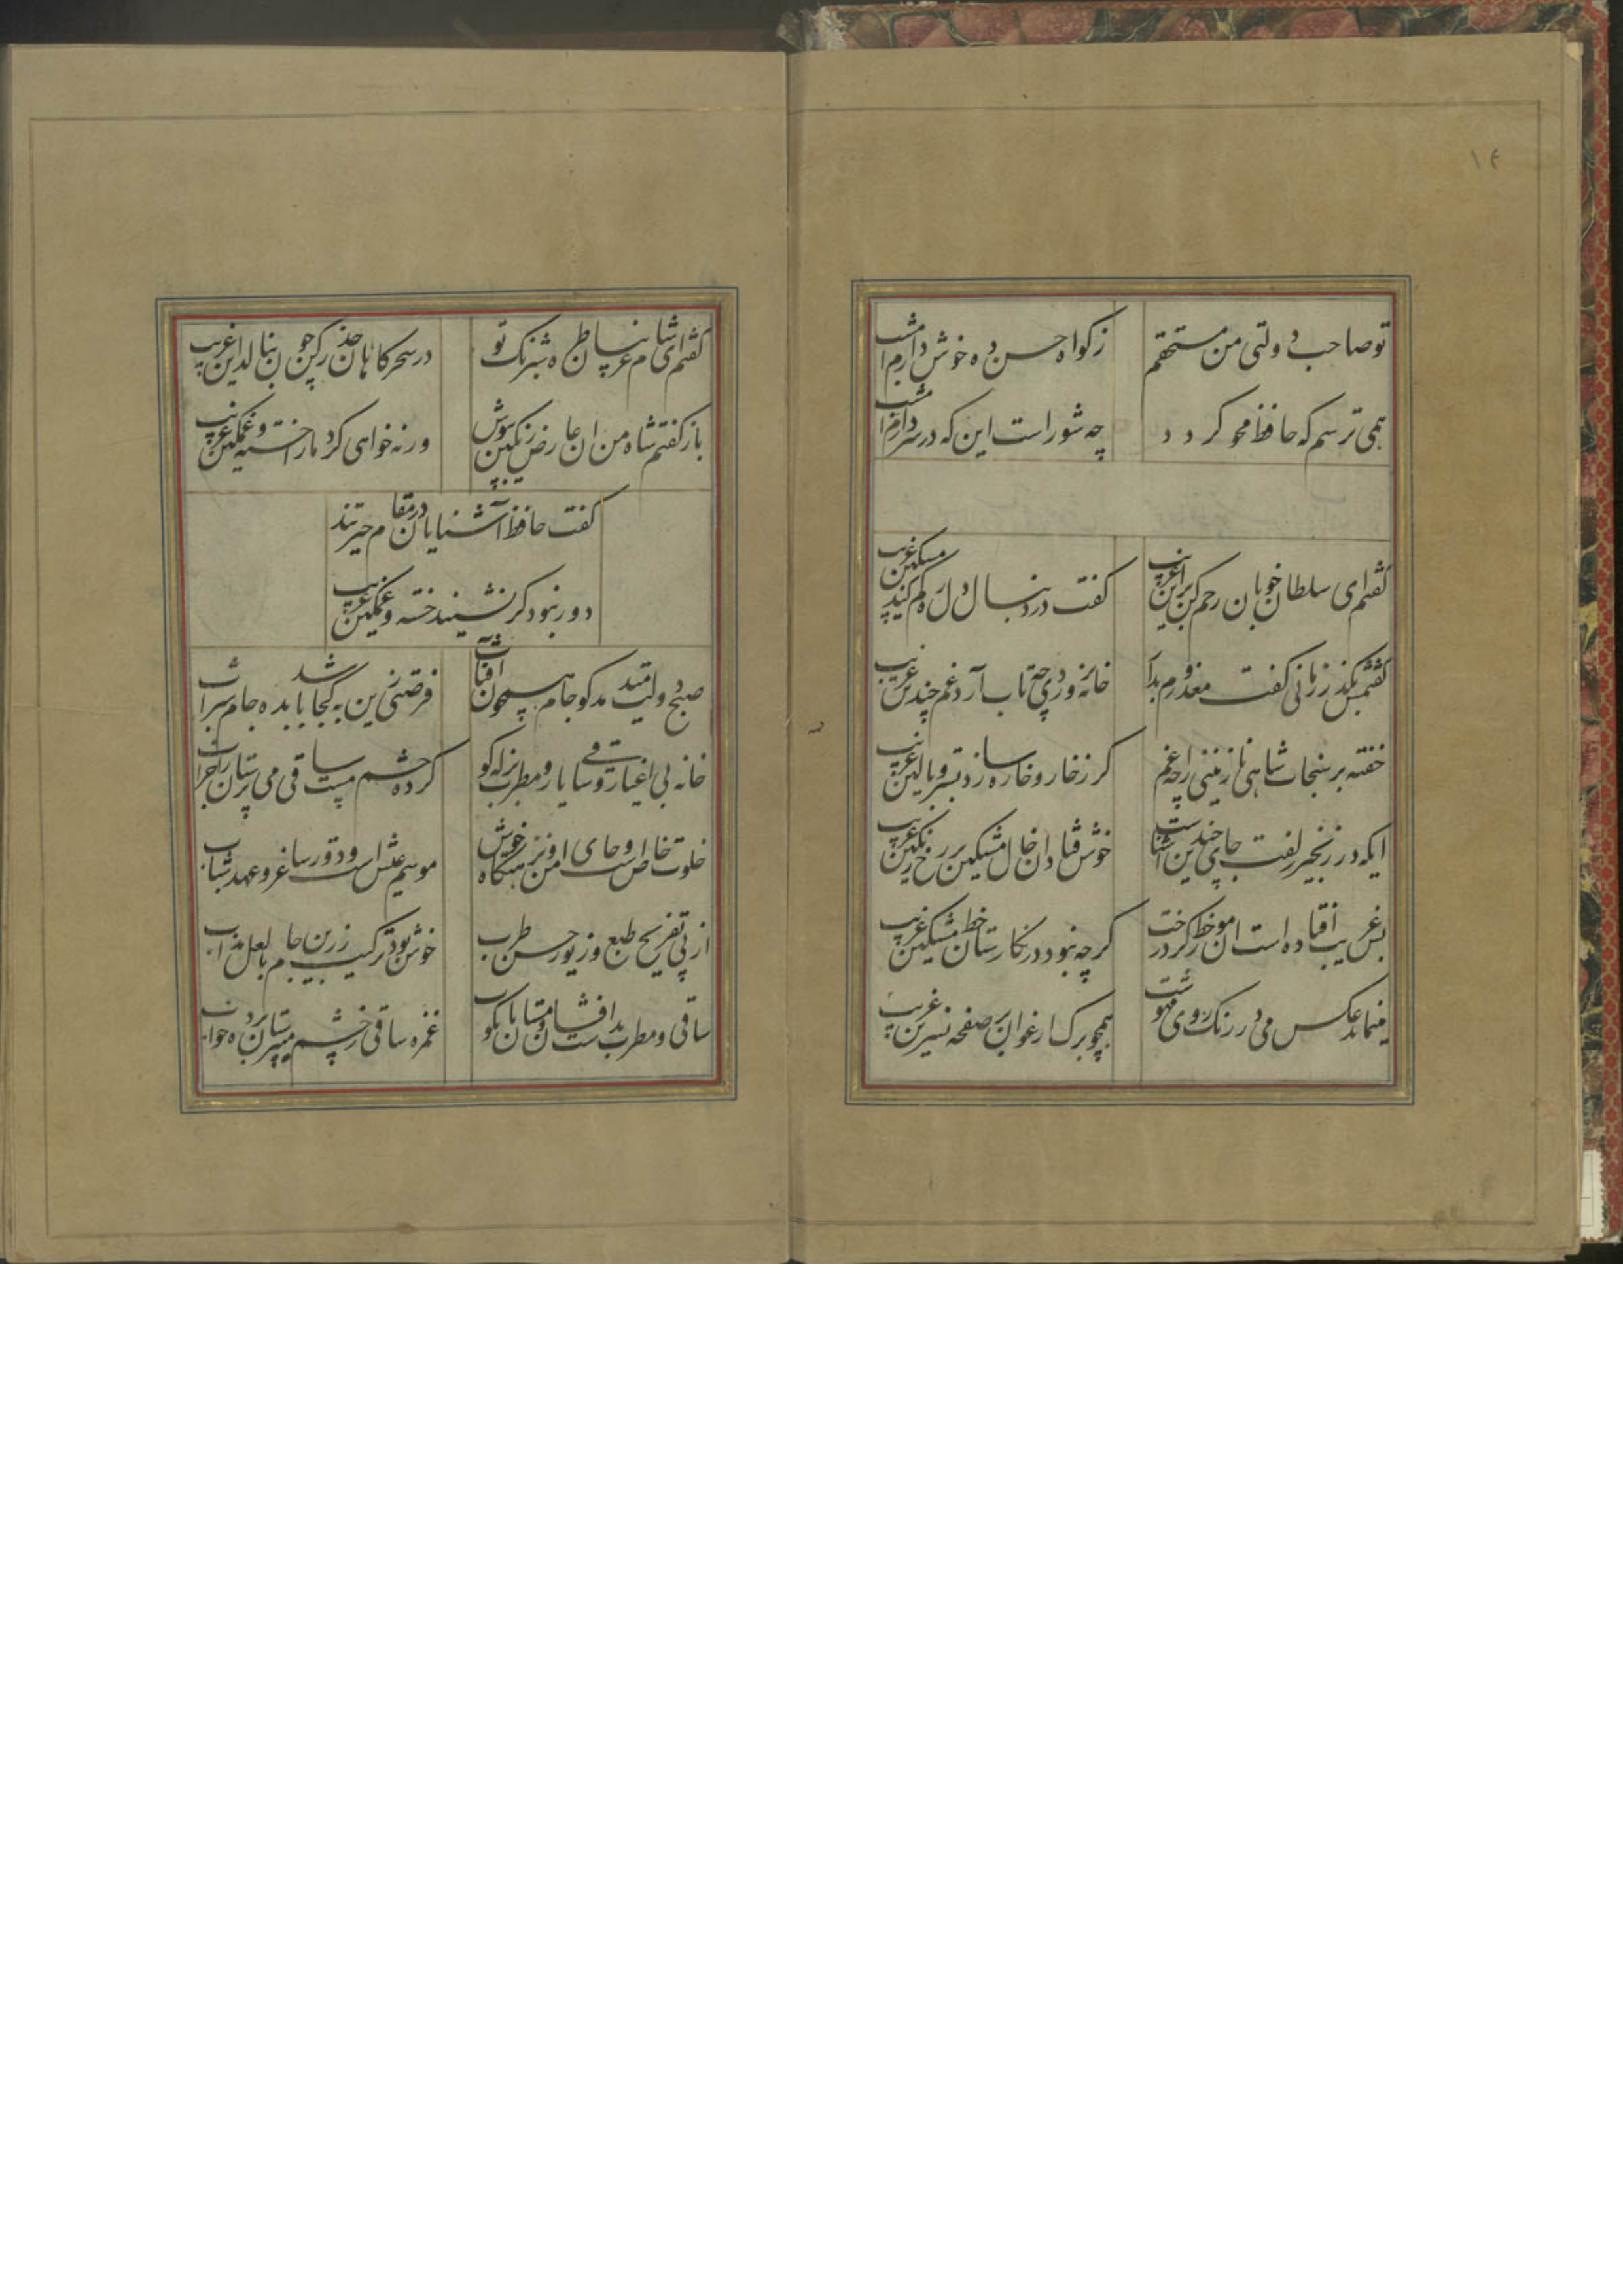 ۱۴
تو صاحب دولتی من مستحقم
زکواه حسن ده خوش دارم امشب
همی ترسم که حافظ محو کردد
چه شور است این که در سر دارم امشب
کفتم ای سلطان خوبان رحم کن بر این غریب
کفت در دنبال دل ره کم کند مسکین غریب
کفتمش مکذر زمانی کفت معذورم بدار
خانه پروردی چه تاب آرد غم چندین غریب
خفته بر سنجاب شاهی نازنینی را چه غم
کر ز خار و خاره سازد بستر و بالین غریب
ایکه در زنجیر زلفت جای چندین آشناست
خوش فتاد ان خال مشکین بر رخ رنکین غریب
بس غریب افتاده است ان مور خط کرد رخت
کرچه نبود در نکارستان خط مشکین غریب
مینماید عکس می در رنک روی مهوشت
همچو برک ارغوان بر صفحه نسرین غریب
کفتم ای شام غریبان طره شبرنک تو
در سحرکاهان حذر کن چون بنالد این غریب
باز کفتم شاه من ان عارض رنکین بپوش
ورنه خواهی کرد ما را خسته و غمکین غریب
کفت حافظ آشنایان در مقام حیرتند
دور نبود کر نشیند خسته و غمکین غریب
صبح دولت میدمد کو جام همچون آفتاب
فرصتی زین به کجا باشد بده جام شراب
خانه بی اغیار و ساقی یار و مطرب بزله کو
کرده چشم مست ساقی می پرستان را خراب
خلوت خاص است و جای امن و نزهتکاه خوش
موسم عیش است و دور ساغر و عهد شباب
از پی تفریح طبع و زیور حسن طرب
خوش بود ترکیب زرین جام با لعل مذاب
ساقی و مطرب بدست افشان و مستان پای کوب
غمزه ساقی ز چشم می پرستان برده خواب